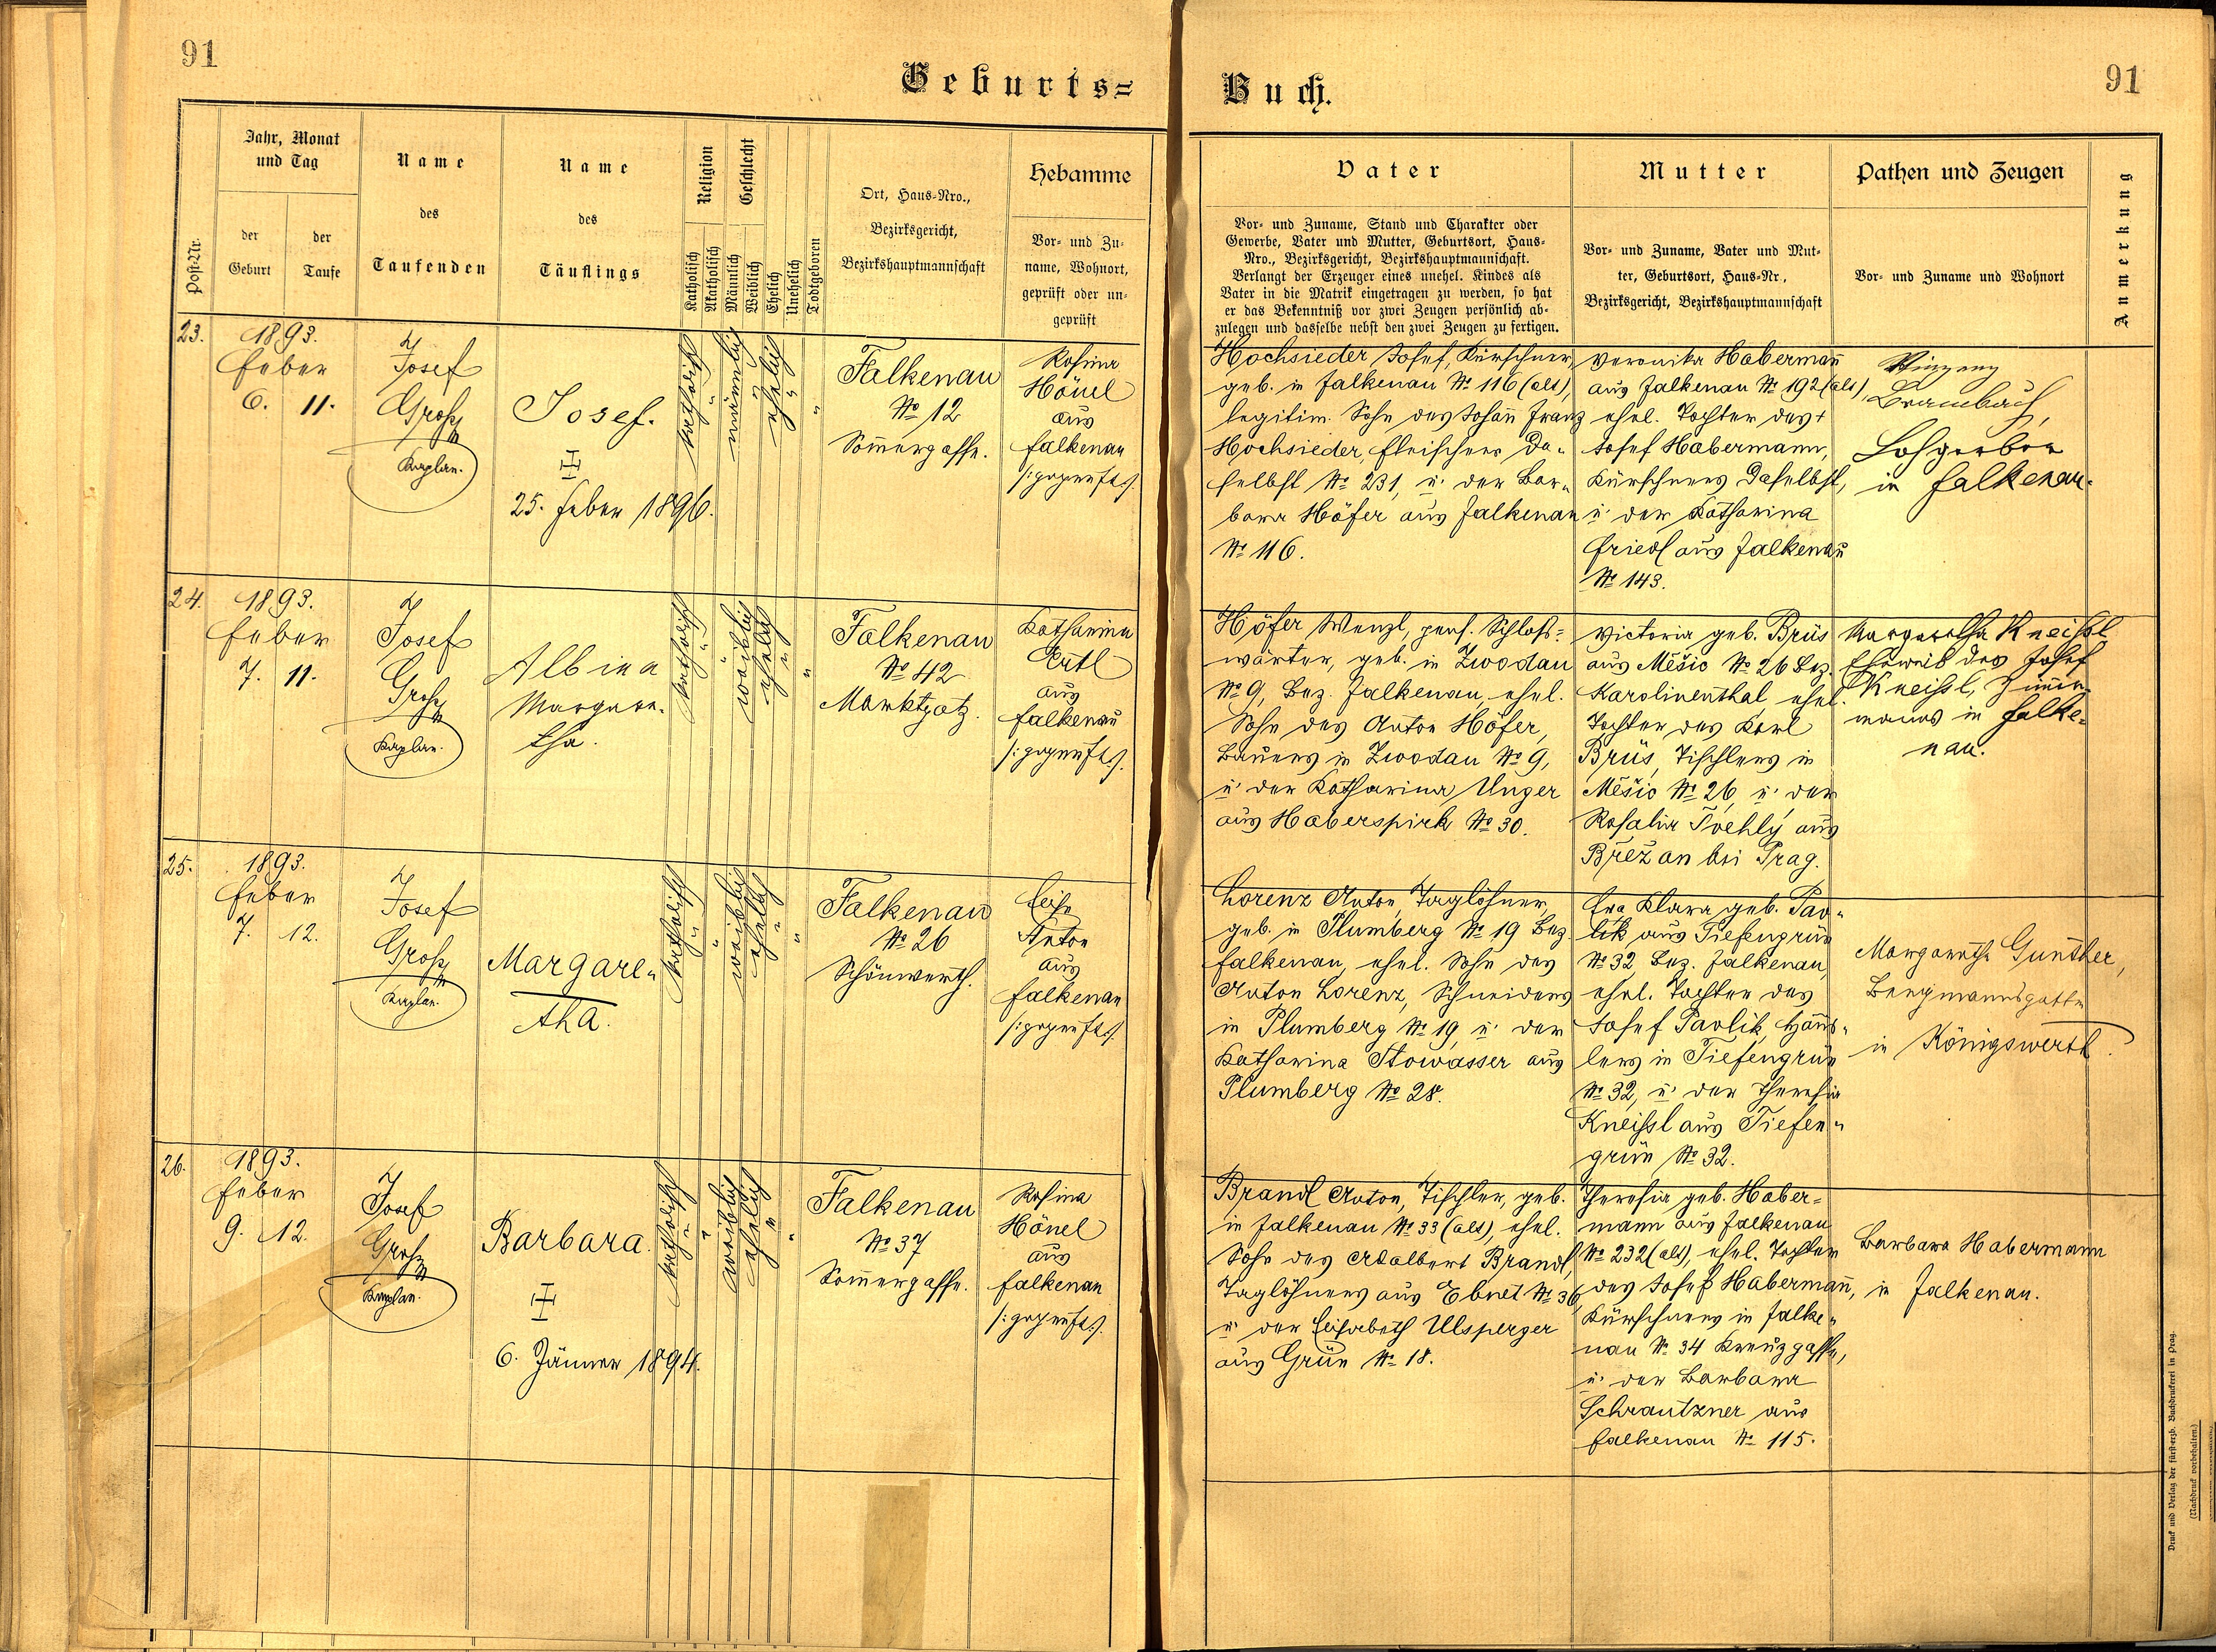 91
Geburts=
Post-Nr.
Jahr, Monat
und Tag
der
Geburt
der
Taufe
Name
des
Taufenden
Name
des
Täuflings
Religion
Katholisch
Akatholisch
Geschlecht
Männlich
Weiblich
Ehelich
Unehelich
Todtgeboren
Ort, Haus-Nro.,
Bezirksgericht,
Bezirkshauptmannschaft
Hebamme
Vor- und Zu-
name, Wohnort,
geprüft oder un-
geprüft
23.
1893.
Feber
6. 11.
Josef
Groß
Kaplan.
Josef.
25. Feber 1896.
katholisch
männlich
ehelich
Falkenau
No 12
Som̄ergasse.
Rosina
Hönel
aus
Falkenau
/:geprüft:/.
24.
1893.
Feber
7. 11.
Josef
Groß
Kaplan.
Albina
Margare-
tha.
katholisch
weiblich
ehelich
Falkenau
No 42
Marktplatz.
Katharina
Ertl
aus
Falkenau
/:geprüft:/.
25.
1893.
Feber
7. 12.
Josef
Groß
Kaplan.
Margare-
tha.
katholisch
weiblich
ehelich
Falkenau
No 26
Schönwerth.
Anton
aus
Falkenau
/:geprüft:/.
26.
1893.
Feber
9. 12.
Josef
Groß
Kaplan.
Barbara.
6. Jänner 1894.
katholisch
weiblich
ehelich
Falkenau
No 37
Som̄ergasse.
Rosina
Hönel
aus
Falkenau
/:geprüft:/.
Buch.
91
Vater
Vor- und Zuname, Stand und Charakter oder
Gewerbe, Vater und Mutter, Geburtsort, Haus-
Nro., Bezirksgericht, Bezirkshauptmannschaft.
Verlangt der Erzeuger eines unehel. Kindes als
Vater in die Matrik eingetragen zu werden, so hat
er das Bekenntniß vor zwei Zeugen persönlich ab-
zulegen und dasselbe nebst den zwei Zeugen zu fertigen.
Mutter
Vor- und Zuname, Vater und Mut-
ter, Geburtsort, Haus-Nr.,
Bezirksgericht, Bezirkshauptmannschaft
Pathen und Zeugen
Vor- und Zuname und Wohnort
Anmerkung
Hochsieder, Josef, Kürschner,
geb. in Falkenau No 116 (alt),
legitim. Sohn des Johan̄ Franz
Hochsieder, Fleischers da-
selbst No 231, u. der Bar-
bara Höfer aus Falkenau
No 116.
Veronika Haberman̄
aus Falkenau No 192 (alt),
ehel. Tochter des +
Josef Habermann,
Kürschners daselbst,
u. der Katharina
Friedl aus Falkenau
No 143.
Brambach,
Lohgerber
in Falkenau.
Höfer Wenzl, pens. Schloß-
wärter, geb. in Zwodau
No 9, Bez. Falkenau, ehel.
Sohn des Anton Höfer,
Bauers in Zwodau No 9,
u. der Katharina Unger
aus Haberspirk No 30.
Victoria geb. Brüs
aus Měšic No 26 Bez.
Karolinenthal, ehel.
Tochter des Karl
Brüs, Tischlers in
Měšic No 26, u. der
Rosalia aus
Břežan bei Prag.
Margaretha Kneißl
Eheweib des Josef
Kneissl, Zim̄er-
manns in Falke-
nau.
Lorenz Anton, Taglöhner,
geb. in Plumberg No 19 Bez.
Falkenau, ehel. Sohn des
Anton Lorenz, Schneiders
in Plumberg No 19, u. der
Katharina Stowasser aus
Plumberg No 28.
Eva Klara geb. Pav-
lik aus Tiefengrün
No 32, Bez. Falkenau,
ehel. Tochter des
Josef Pavlik, Häus-
lers in Tiefengrün
No 32, u. der Theresia
Kneissl aus Tiefen-
grün No 32.
Margaretha Günther,
Bergmannsgattin
in Königswerth.
Brandl Anton, Tischler, geb.
in Falkenau No 33 (alt), ehel.
Sohn des Adalbert Brandl,
Taglöhners aus Ebnet No 36,
u. der Elisabeth Ulsperger
aus Grün No 18.
Theresia geb. Haber-
mann aus Falkenau
No 232 (alt), ehel. Tochter
des Josef Haberman̄,
Kürschners in Falke-
nau No 34 Kreuzgasse,
u. der Barbara
Schrautzner aus
Falkenau No 115.
Barbara Habermann
in Falkenau.
Druck und Verlag der fürst-erzb. Buchdruckerei in Prag.
(Nachdruck vorbehalten.)